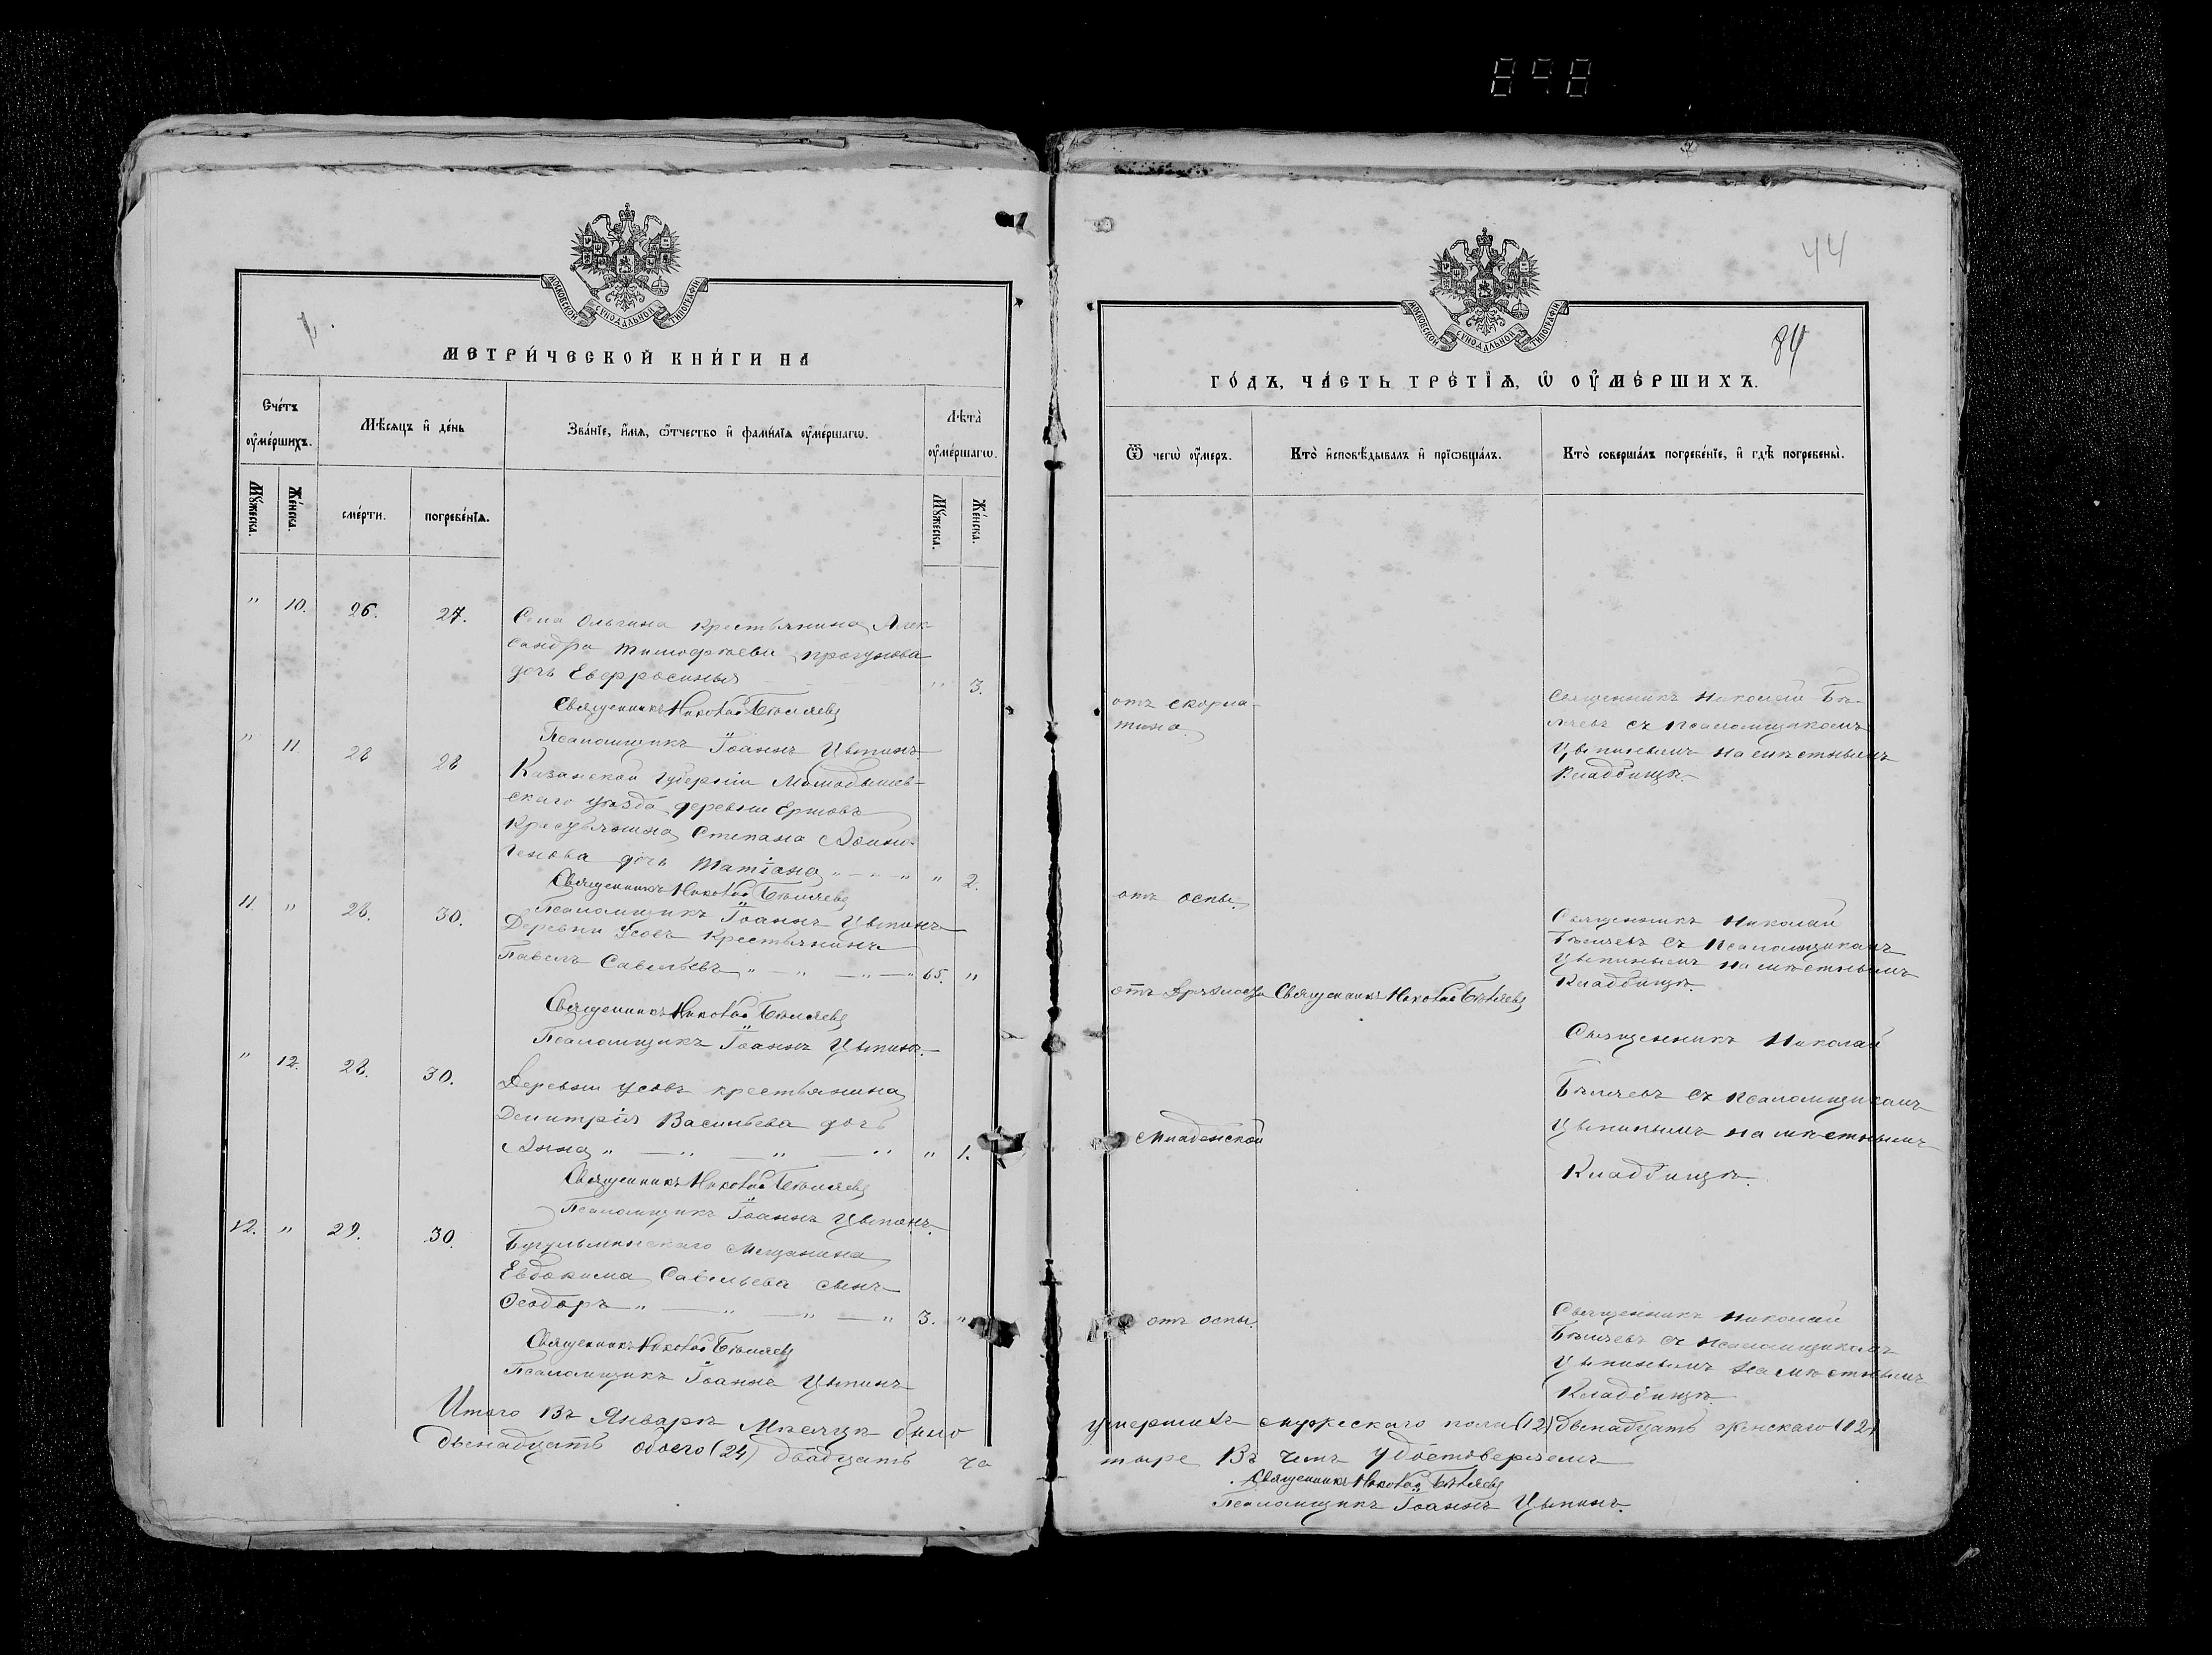 898
МОСКОВСКОЙ СѴНОДАЛЬНОЙ ТИПОГРАФІИ
МЕТРИ́ЧЕСКОЙ КНИ́ГИ НА
Сче́тъ ᲂу҆ме́ршихъ.
Мѣ́сяцъ и҆ де́нь
Зва́нїе, и҆́мя, ѻ҆́тчество и҆ фами́лїя ᲂу҆ме́ршагѡ.
Лѣта̀ ᲂу҆ме́ршагѡ.
Мꙋ́жеска.
Же́нска.
сме́рти.
погребе́нїѧ.
Мꙋ́жеска.
Же́нска.
" 10. 26. 27. Села Ольгина крестьянина Алек-
сандра Тимофѣева
дочь Евфросинья " 3.
Священникъ Николай Бѣляевъ
Псаломщикъ Іоаннъ Цыпинъ
" 11 28 28 Казанской губерніи Мамадышев-
скаго уѣзда деревни Ершовъ
крестьянина Степана Аѳино-
генова дочь Татіана " — " — " " 2.
Священникъ Николай Бѣляевъ
Псаломщикъ Іоаннъ Цыпинъ
11. " 28. 30. Деревни Усовъ крестьянинъ
Павелъ Савельевъ " — " — " — " 65. "
Священникъ Николай Бѣляевъ
Псаломщикъ Іоаннъ Цыпинъ.
" 12. 28. 30. Деревни Усовъ крестьянина
Димитрія Васильева дочь
Анна " — " — " — " " 1.
Священникъ Николай Бѣляевъ
Псаломщикъ Іоаннъ Цыпинъ.
12. " 29. 30. Бугульминскаго мещанина
Евдокима Савельева сынъ
Ѳеодоръ " — " — " — " 3. "
Священникъ Николай Бѣляевъ
Псаломщикъ Іоаннъ Цыпинъ
Итого въ Январѣ мѣсяцѣ было
двенадцать обоего (24) двадцать че
44
МОСКОВСКОЙ СѴНОДАЛЬНОЙ ТИПОГРАФІИ
84
ГО́ДЪ, ЧА́СТЬ ТРЕ́ТЇѦ, Ѽ ОУ҆МЕ́РШИХЪ.
Ѿ чегѡ̀ ᲂу҆́меръ.
Кто̀ и҆сповѣ́дывалъ и҆ прїѡбща́лъ.
Кто̀ соверша́лъ погребе́нїе, и҆ гдѣ̀ погребены̀.
отъ скорла-
тина.
Священникъ Николай Бѣ-
ляевъ съ псаломщикомъ
Цыпинымъ на мѣстнымъ
Кладбищѣ.
отъ оспы.
Священникъ Николай
Бѣляевъ съ псаломщикомъ
Цыпинымъ на мѣстнымъ
Кладбищѣ.
отъ Священникъ Николай Бѣляевъ
Священникъ Николай
Бѣляевъ съ псаломщикомъ
Цыпинымъ на мѣстнымъ
Кладбищѣ.
Младенской
отъ оспы
Священникъ Николай
Бѣляевъ съ псаломщикомъ
Цыпинымъ на мѣстнымъ
Кладбищѣ
умершихъ мужескаго пола (12) двенадцать женскаго (12)
тыре Въ чемъ удостоверяемъ
Священникъ Николай Бѣляевъ
Псаломщикъ Іоаннъ Цыпинъ.